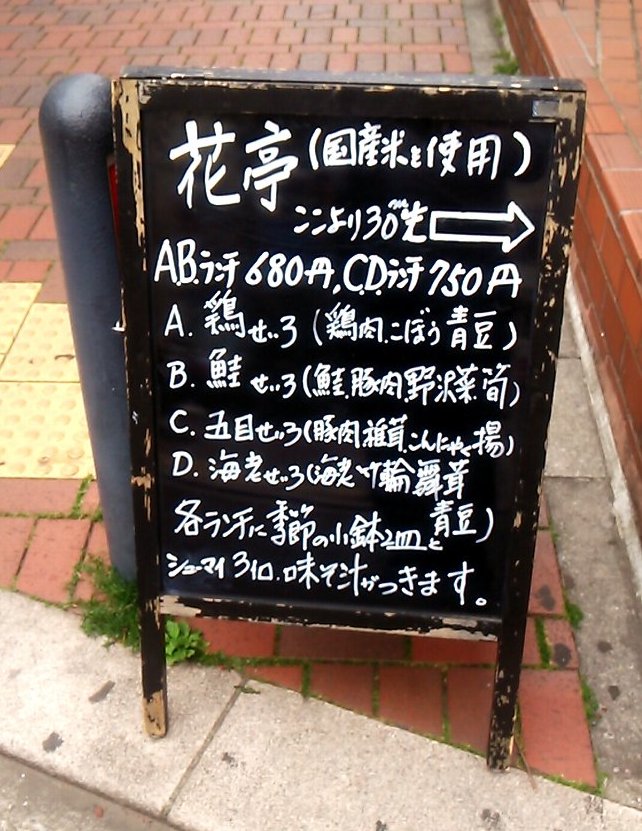 花亭(国産米を使用)
ここより30m先
A.B.ランチ680円,C.D.ランチ750円
A. 鶏せいろ(鶏肉.ごぼう青豆)
B. 鮭せいろ(鮭.豚肉.野沢菜.筍)
C. 五目せいろ(豚肉.椎茸.こんにゃく揚)
D. 海老せいろ(海老竹輪舞茸
青豆)
各ランチに季節の小鉢2皿と
シューマイ3個.味そ汁がつきます。